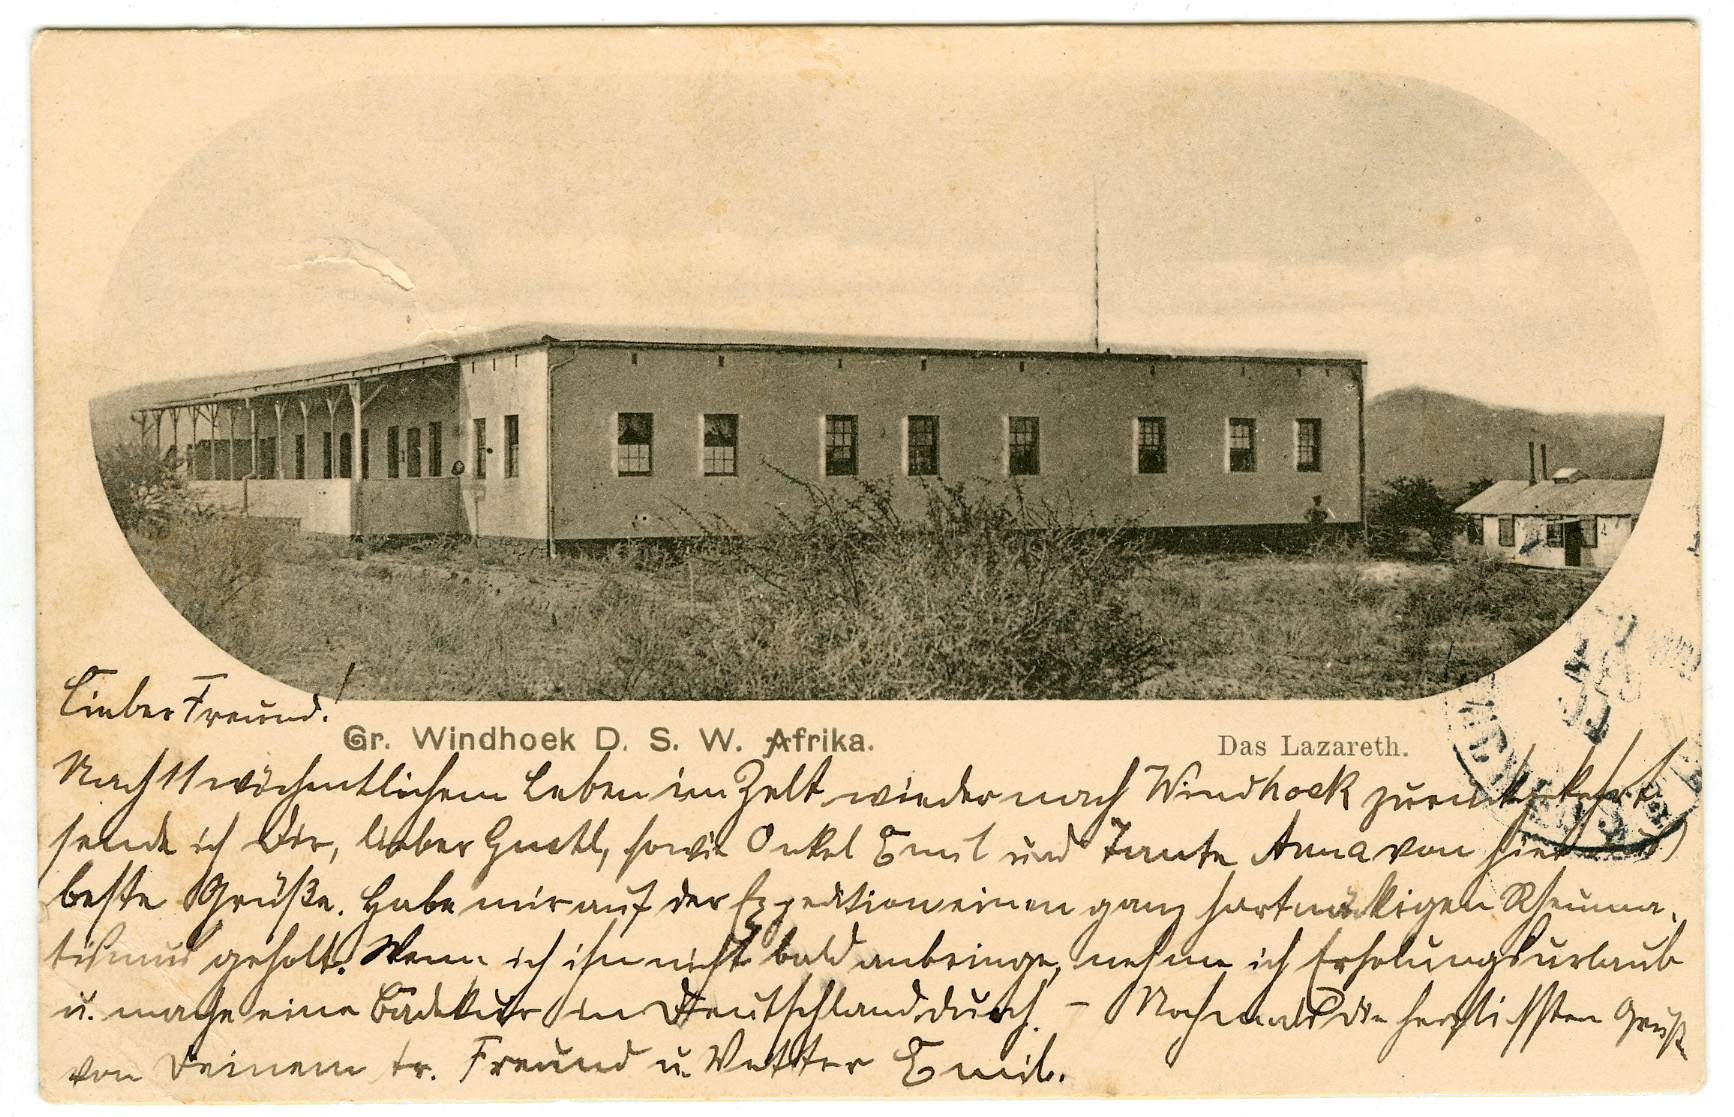 Lieber Freund!
Gr. Windhoek D. S. W. Afrika.
Das Lazareth.
Nach 11 wöchentlichem Leben im Zelt wieder nach Windhoek zurückgekehrt
sende ich Dir, lieber Gustl, sowie Onkel Emil und Tante Anna von hier
beste Grüße. Habe mir auf der Expedition einen ganz hartnäckigen Rheuma-
tismus geholt. Wenn ich ihn nicht bald anbringe, nehme ich Erholungsurlaub
u. mache eine Badekur in Deutschland durch. – Nochmals die herzlichsten Grüße
von Deinem tr. Freund u. Vetter Emil.